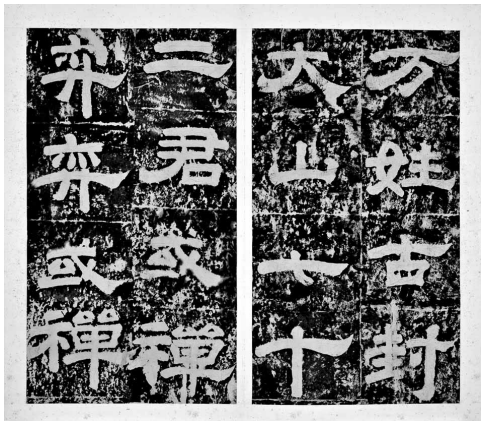 万姓古封
大山七十
二君或禪
弈弈或禪